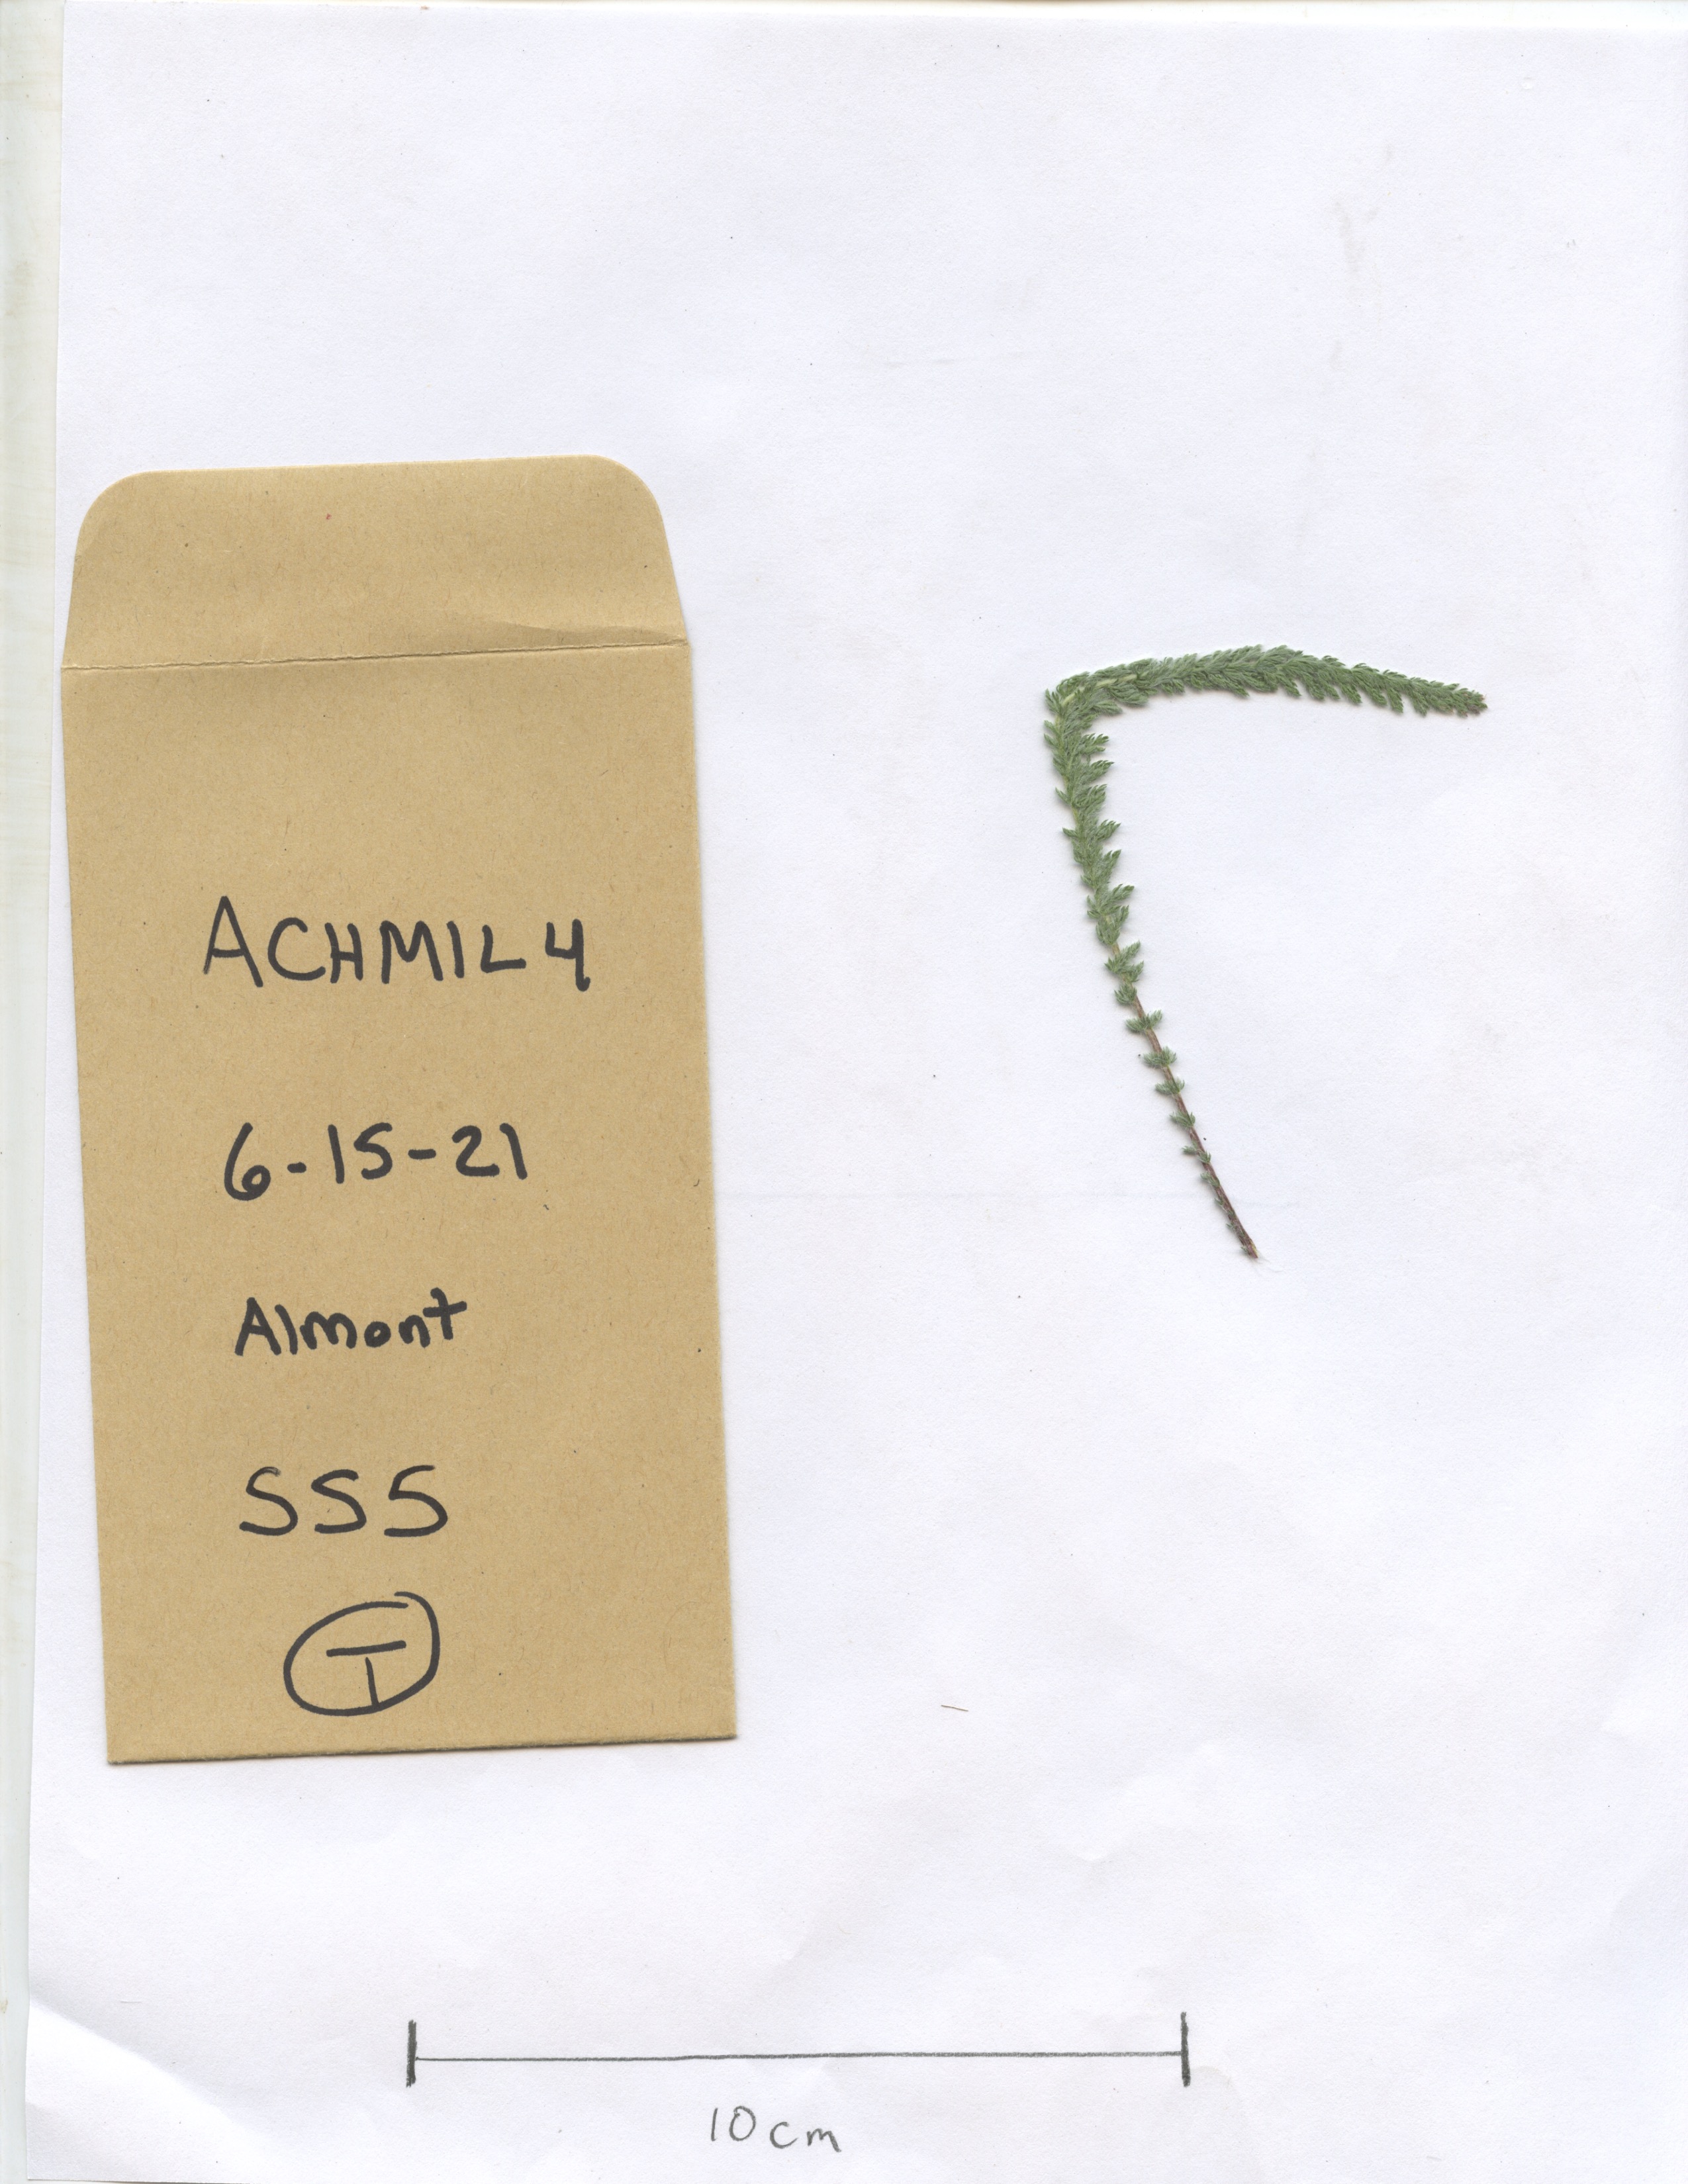 ACHMIL 4
6-15-21
Almont
SS5
T
10 cm